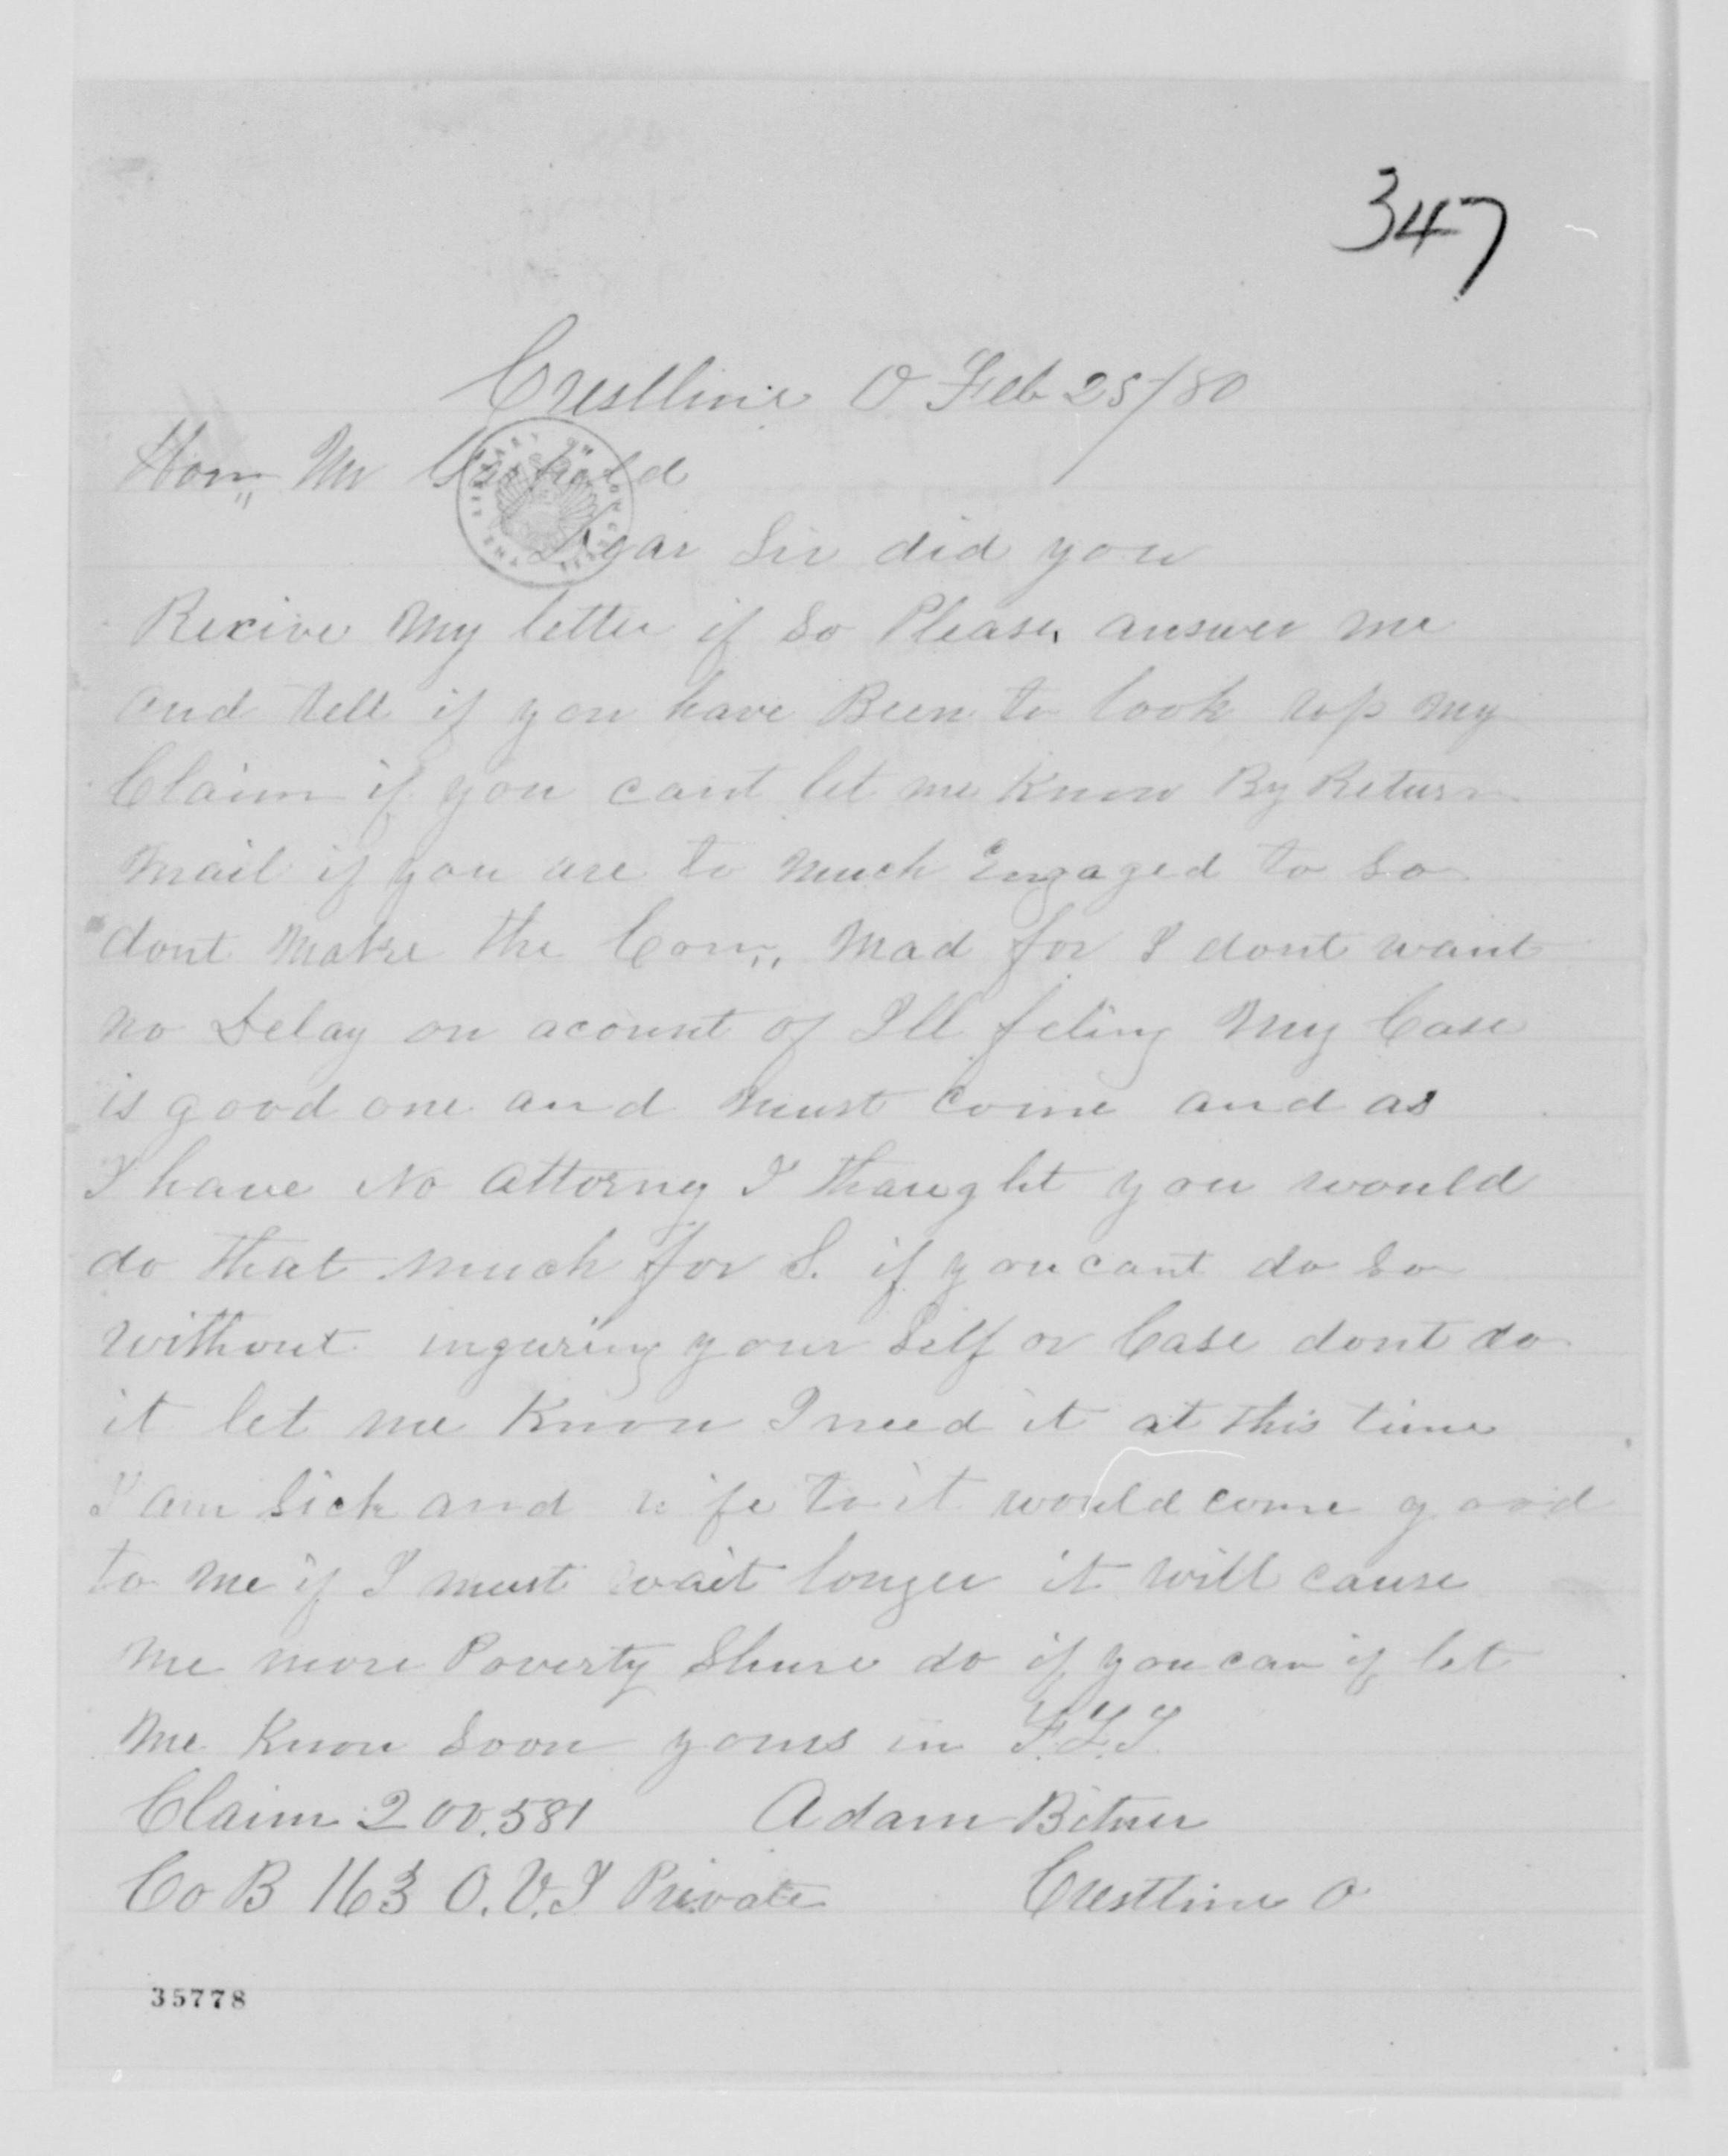 347
Crestline O Feb 25/80
Hon,, Mr Garfield
Dear Sir did you
Recive My letter if So Please answer me
and tell if you have Been to look up My
Claim if you cant let me Know By Return
Mail if you are to Much Engaged to So
dont Make the Com,, Mad for I dont want
no Delay on acount of Ill feling My Case
is good one and Must Come and as
I have No attorny I thaught you would
do that much for I. if you cant do So
without inguring your Self or Case dont do
it let me Know I need it at this time
I am Sick and wife to it would come good
to me if I must wait longer it will cause
me more Poverty Shure do if you can if let
Me Know Soon yours in F.L.T.
Claim 200.581 Adam Bitner
Co B 163 O.V.I Private Crestline O
35778